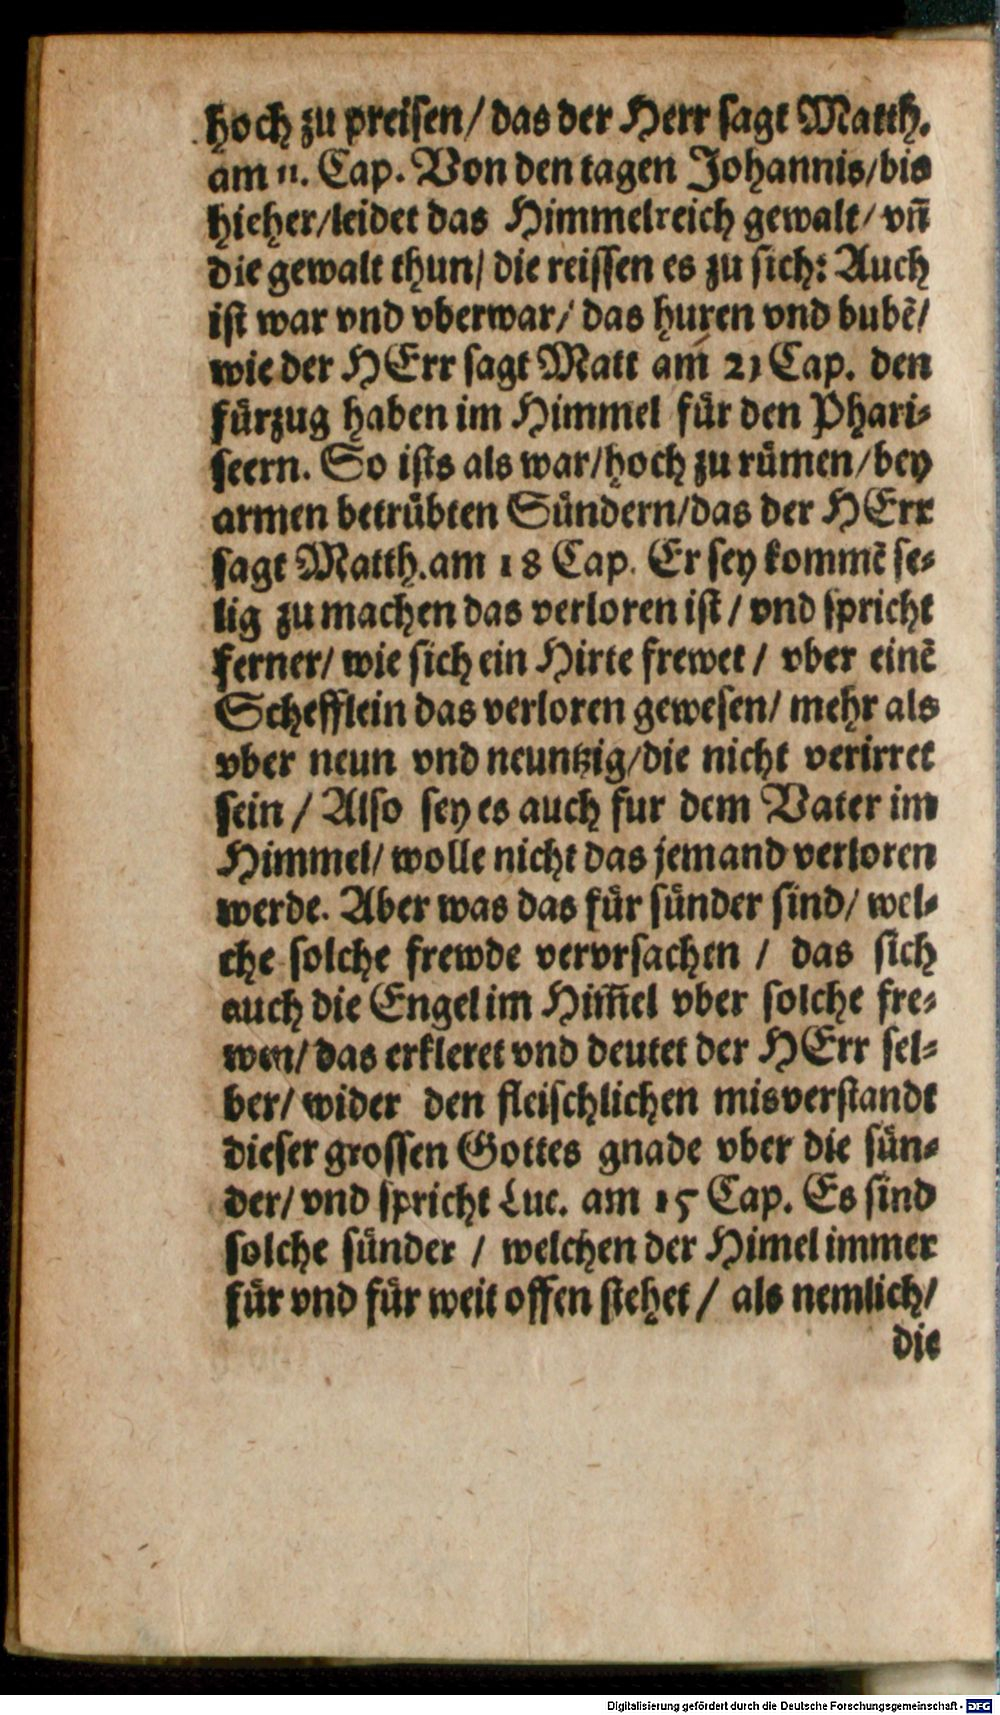 hoch zu preisen/ das der Herr sagt Matth.
am 11. Cap. Von den tagen Johannis/bis
hieher/leidet das Himmelreich gewalt/ vñ
die gewalt thun/ die reissen es zu sich: Auch
ist war vnd vberwar/ das huren vnd bubẽ/
wie der HErr sagt Matt am 21 Cap. den
fürzug haben im Himmel für den Phari-
seern. So ists als war/hoch zu rümen/bey
armen betrübten Sündern/das der HErr
sagt Matth.am 18 Cap. Er sey kommẽ se-
lig zu machen das verloren ist / vnd spricht
ferner/ wie sich ein Hirte frewet / vber einẽ
Schefflein das verloren gewesen/ mehr als
vber neun vnd neuntzig/die nicht verirret
sein / Also sey es auch fur dem Vater im
Himmel/ wolle nicht das jemand verloren
werde. Aber was das für sünder sind/ wel-
che solche frewde vervrsachen / das sich
auch die Engel im Him̃el vber solche fre-
wen/ das erkleret vnd deutet der HErr sel-
ber/ wider den fleischlichen misverstandt
dieser grossen Gottes gnade vber die sün-
der/ vnd spricht Luc. am 15 Cap. Es sind
solche sünder / welchen der Himel immer
für vnd für weit offen stehet / als nemlich/
die
Digitalisierung gefördert durch die Deutsche Forschungsgemeinschaft - DFG